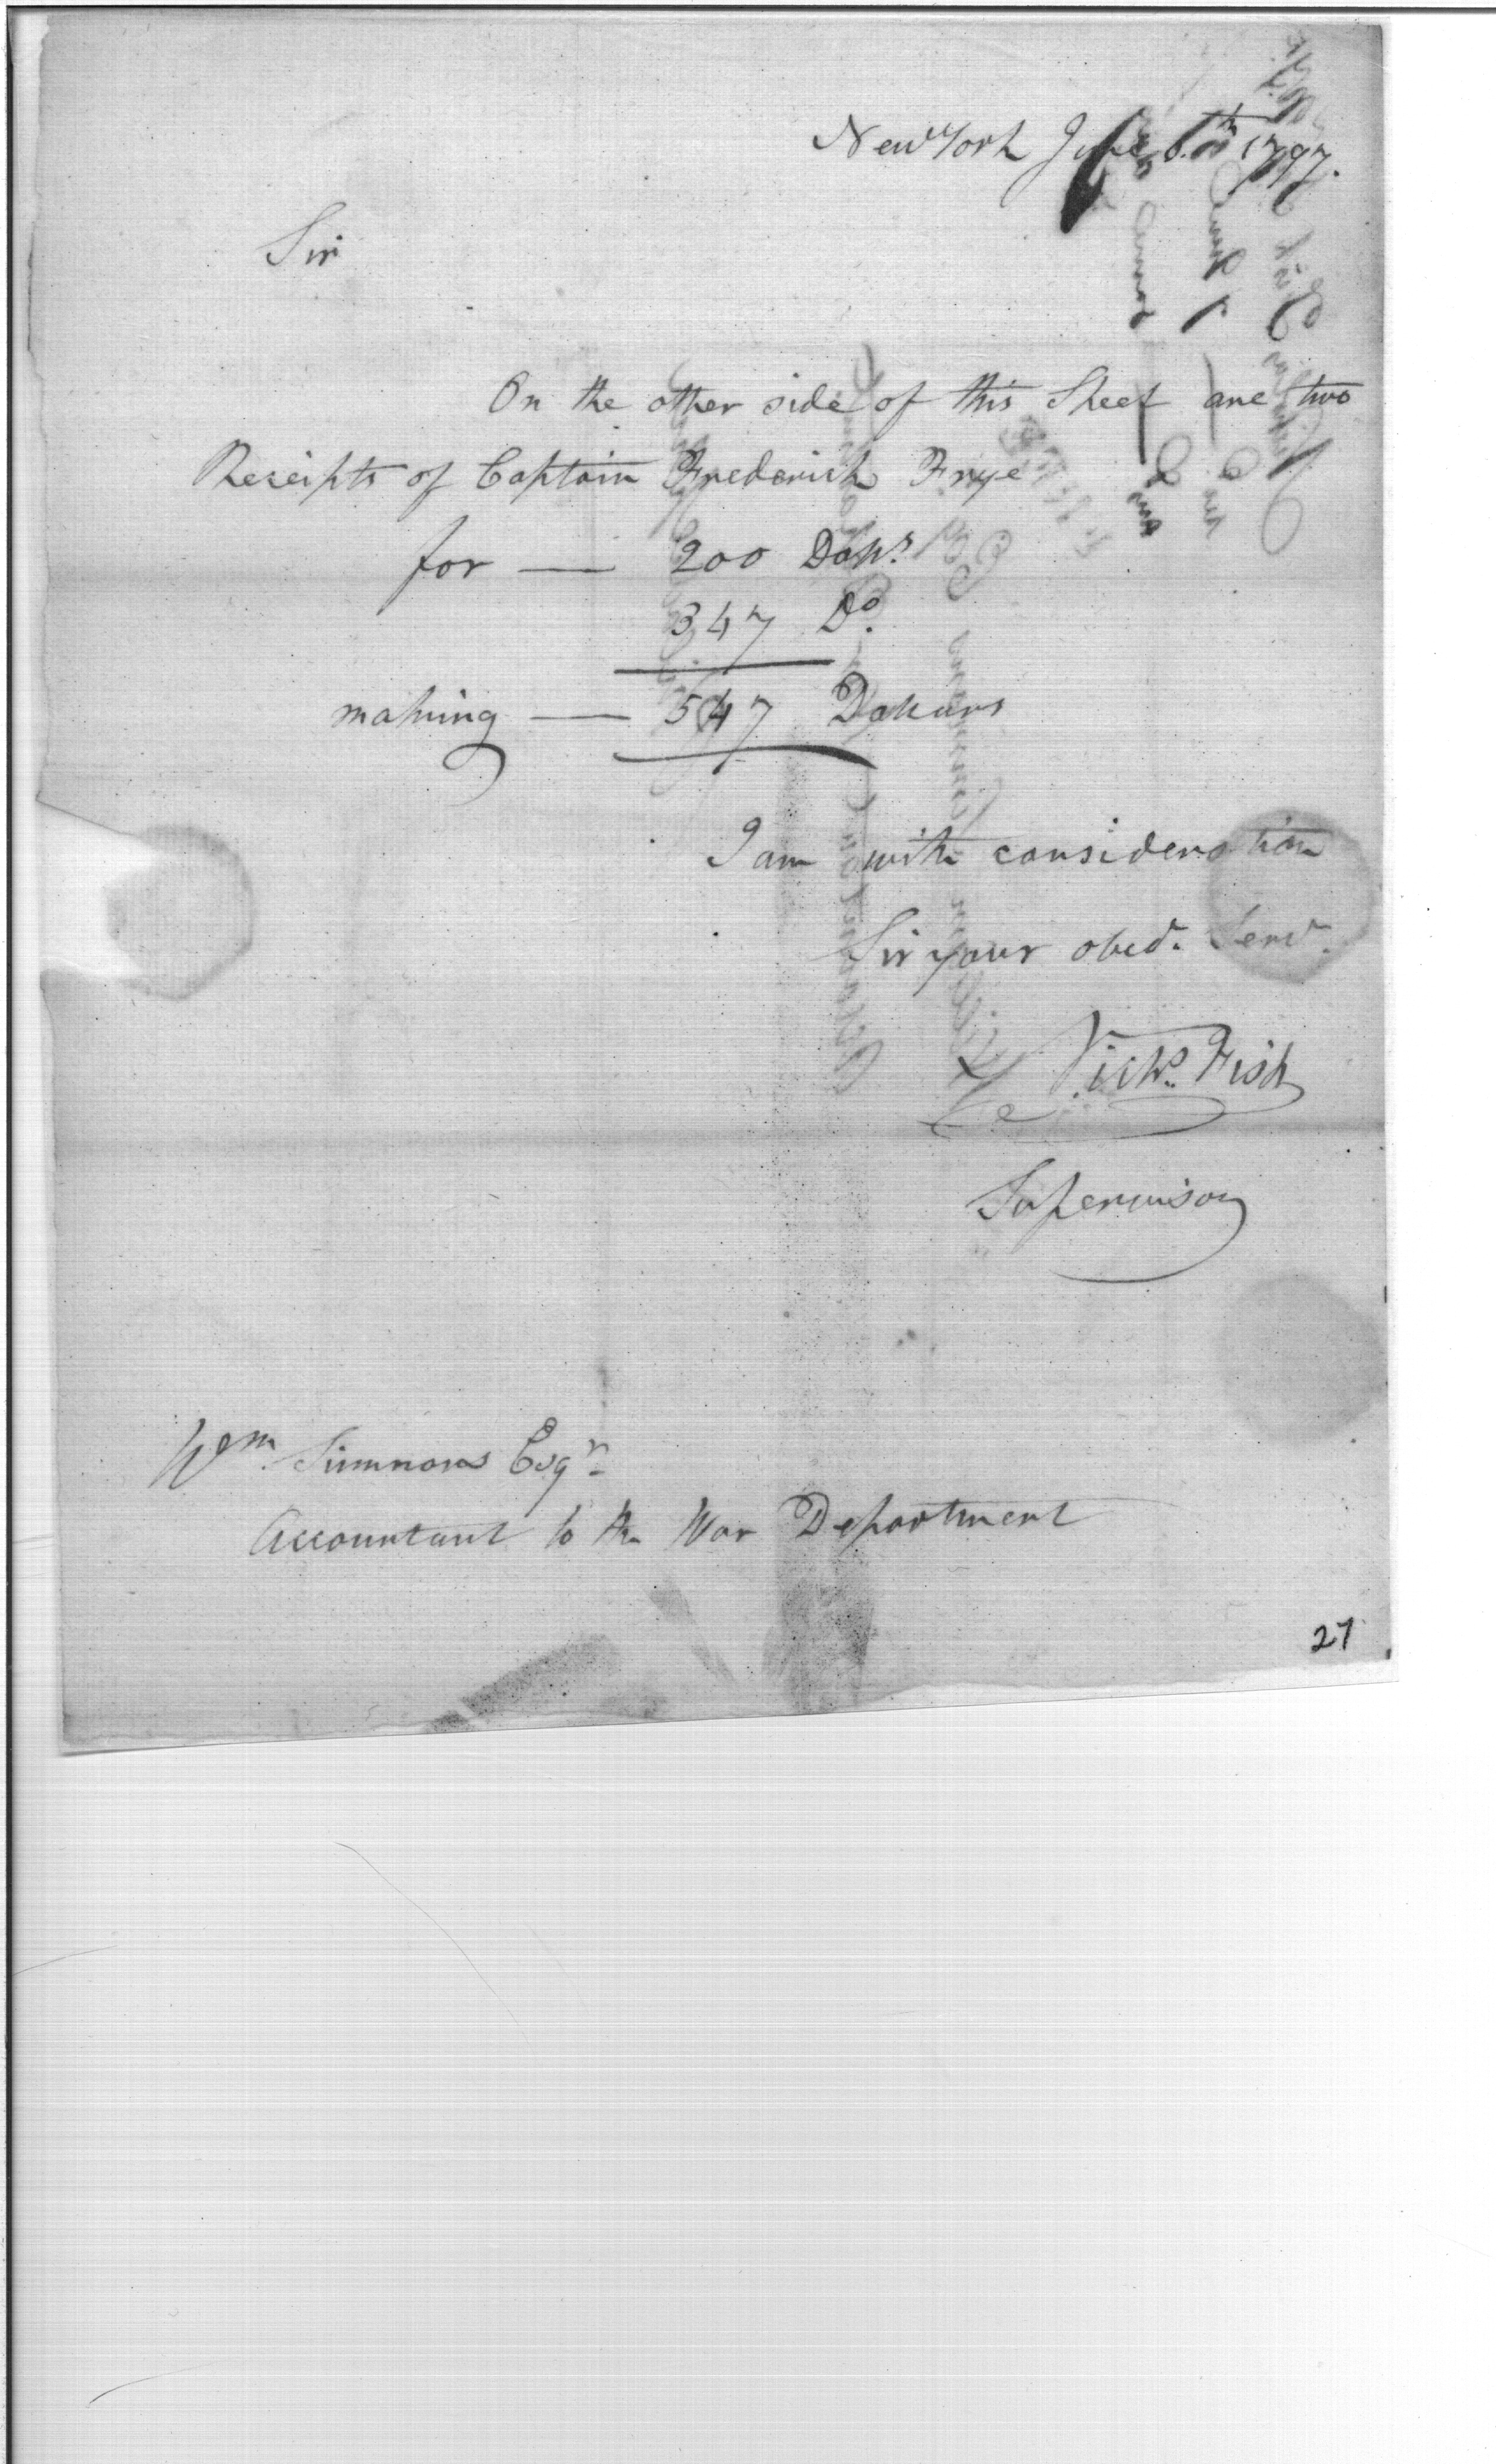 New York June 6.th 1797.
Sir
On the other side of this Sheet are two
Receipts of Captain Frederick Frye
for — 200 Dolls.
347 Do.
making — 547 Dollars
I am with consideration
Sir your obed. Serv.
Nichs. Fish
Supervisor
Wm Simmons Esqr.
Accountant to the War Department
27